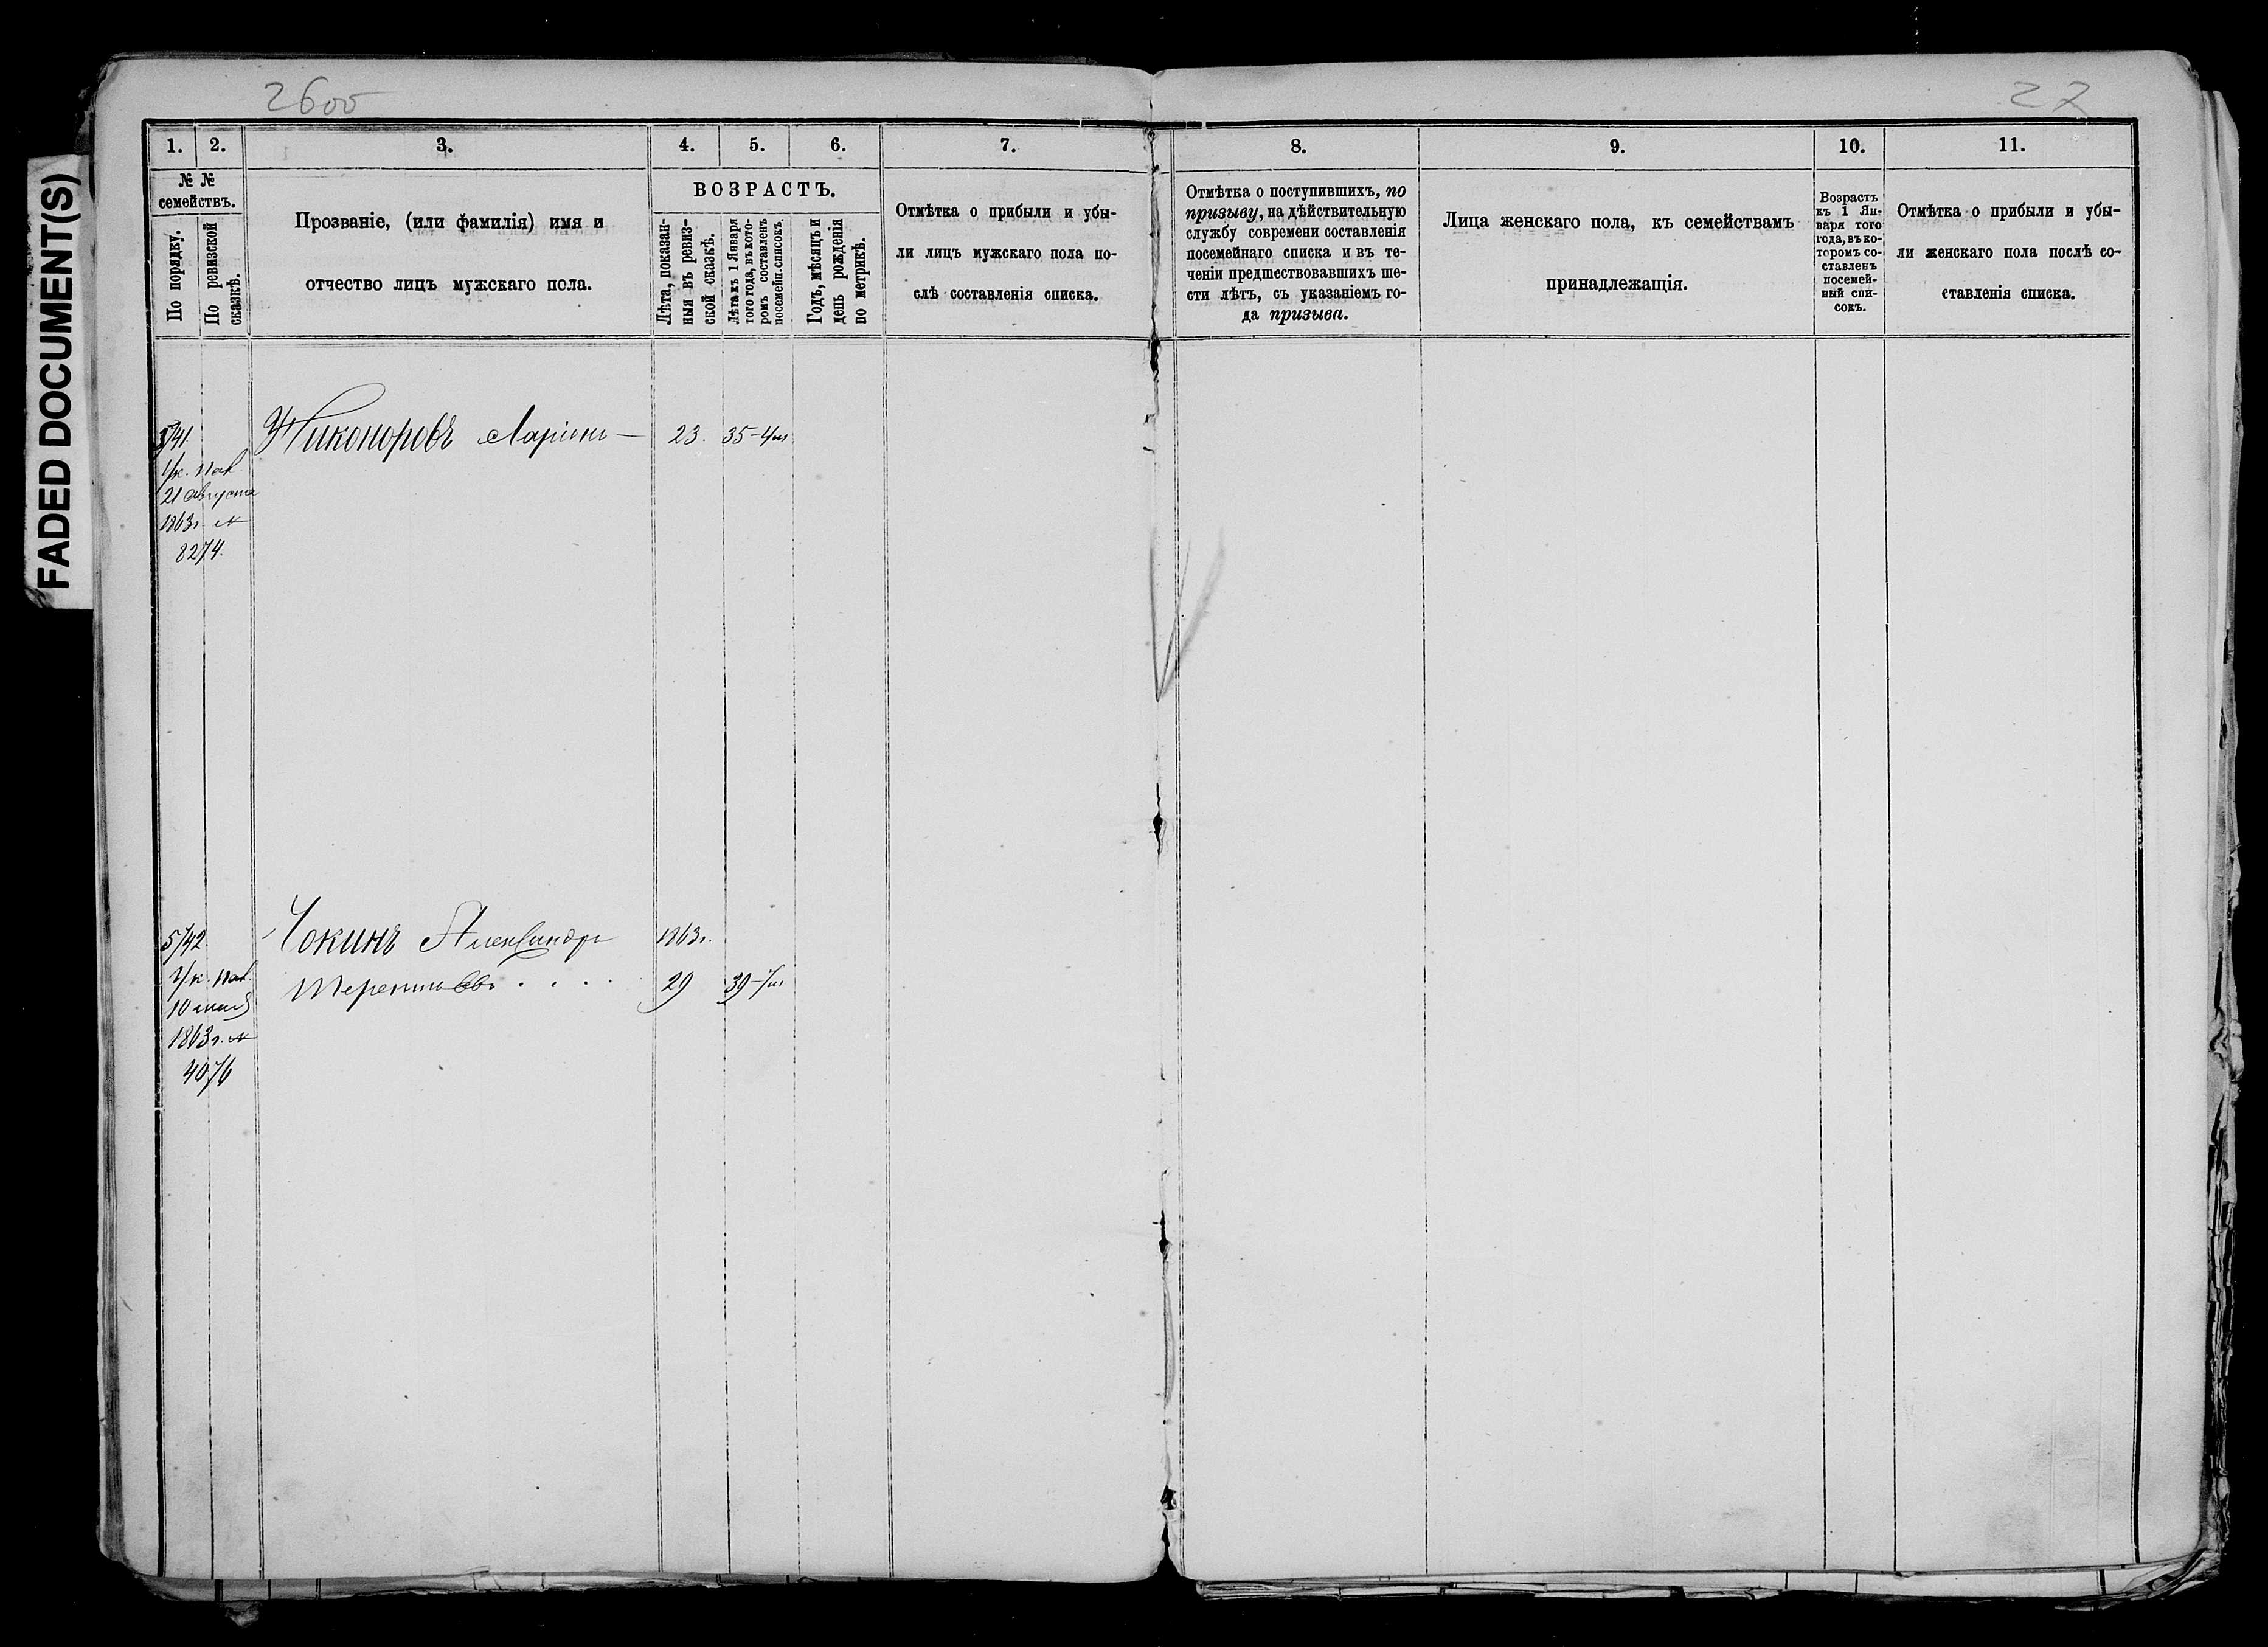 FADED DOCUMENT(S)
2600
27
1. 2. 3. 4. 5. 6. 7. 8. 9. 10. 11.
№ №
семействъ.
По порядку.
По ревизской
сказкѣ.
Прозваніе, (или фамилія) имя и
отчество лицъ мужскаго пола.
ВОЗРАСТЪ.
Лѣта, показан-
ныя въ ревиз-
ской сказкѣ.
Лѣта къ 1 Января
того года, въ кото-
ромъ составленъ
посемейн. списокъ.
Годъ, мѣсяцъ и
день рожденія
по метрикѣ.
Отмѣтка о прибыли и убы-
ли лицъ мужскаго пола по-
слѣ составленія списка.
Отмѣтка о поступившихъ, по
призыву, на дѣйствительную
службу современи составленія
посемейнаго списка и въ те-
ченіи предшествовавшихъ ше-
сти лѣтъ, съ указаніемъ го-
да призыва.
Лица женскаго пола, къ семействамъ
принадлежащія.
Возрастъ
къ 1 Ян-
варя того
года, въ ко-
торомъ со-
ставленъ
посемей-
ный спи-
сокъ.
Отмѣтка о прибыли и убы-
ли женскаго пола послѣ со-
ставленія списка.
/41 Никоноровъ Ларіонъ — 23. 35-4м
21 августа
1863г. №
8274.
5/42 Чокинъ Александръ 1863г.
29 39-7м
10 мая
1863г. №
4076